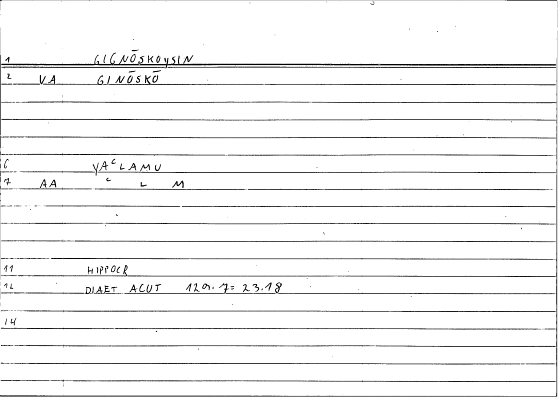 1 GIGNŌSKOYSIN
2 VA GINŌSKŌ
6 YAʿLAMU
7 AA ʿ L M
11 HIPPOCR
12 DIAET ACUT 129.7= 23.18
14